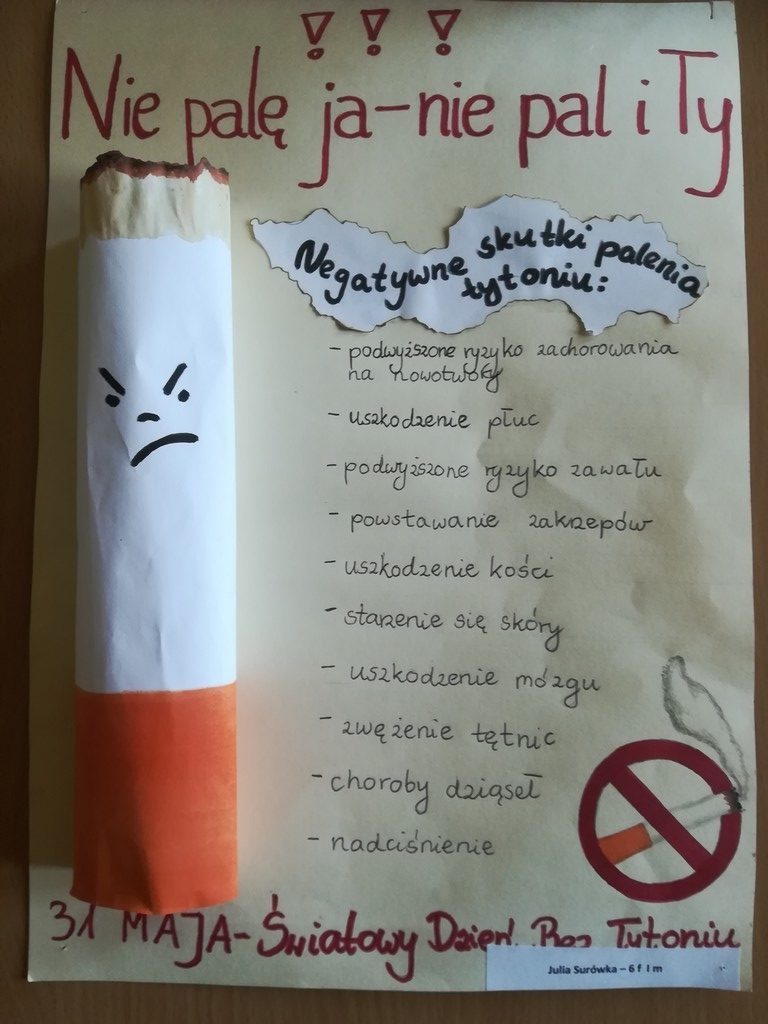 ! ! !
Nie palę ja-nie pal i Ty
Negatywne skutki palenia
tytoniu:
- podwyższone ryzyko zachorowania
na nowotwory
- uszkodzenie płuc
- podwyższone ryzyko zawału
- powstawanie zakrzepów
- uszkodzenie kości
- starzenie się skóry
- uszkodzenie mózgu
- zwężenie tętnic
- choroby dziąseł
- nadciśnienie
31 MAJA- Światowy Dzień Bez Tytoniu
Julia Surówka – 6 f I m